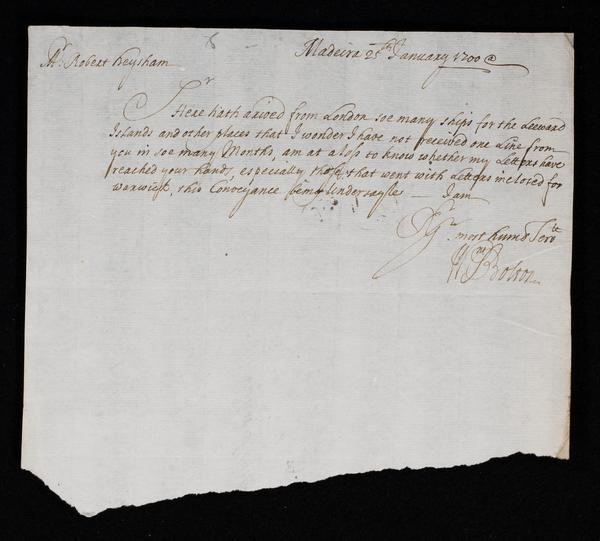 Mr. Robert Heysham
Madeira 25th January 1700
Sr
Here hath arived from London soe many ships for the Leeward
Islands and other places that I wonder I have not received one Line from
you in soe many Months, am at a loss to know whether my Letters have
reached your hands, especially those that went with Letters inclosed for
Warwick, this Conveyance being Undersayle I am
Sr
Yr most humb Servte
Wm Bolton